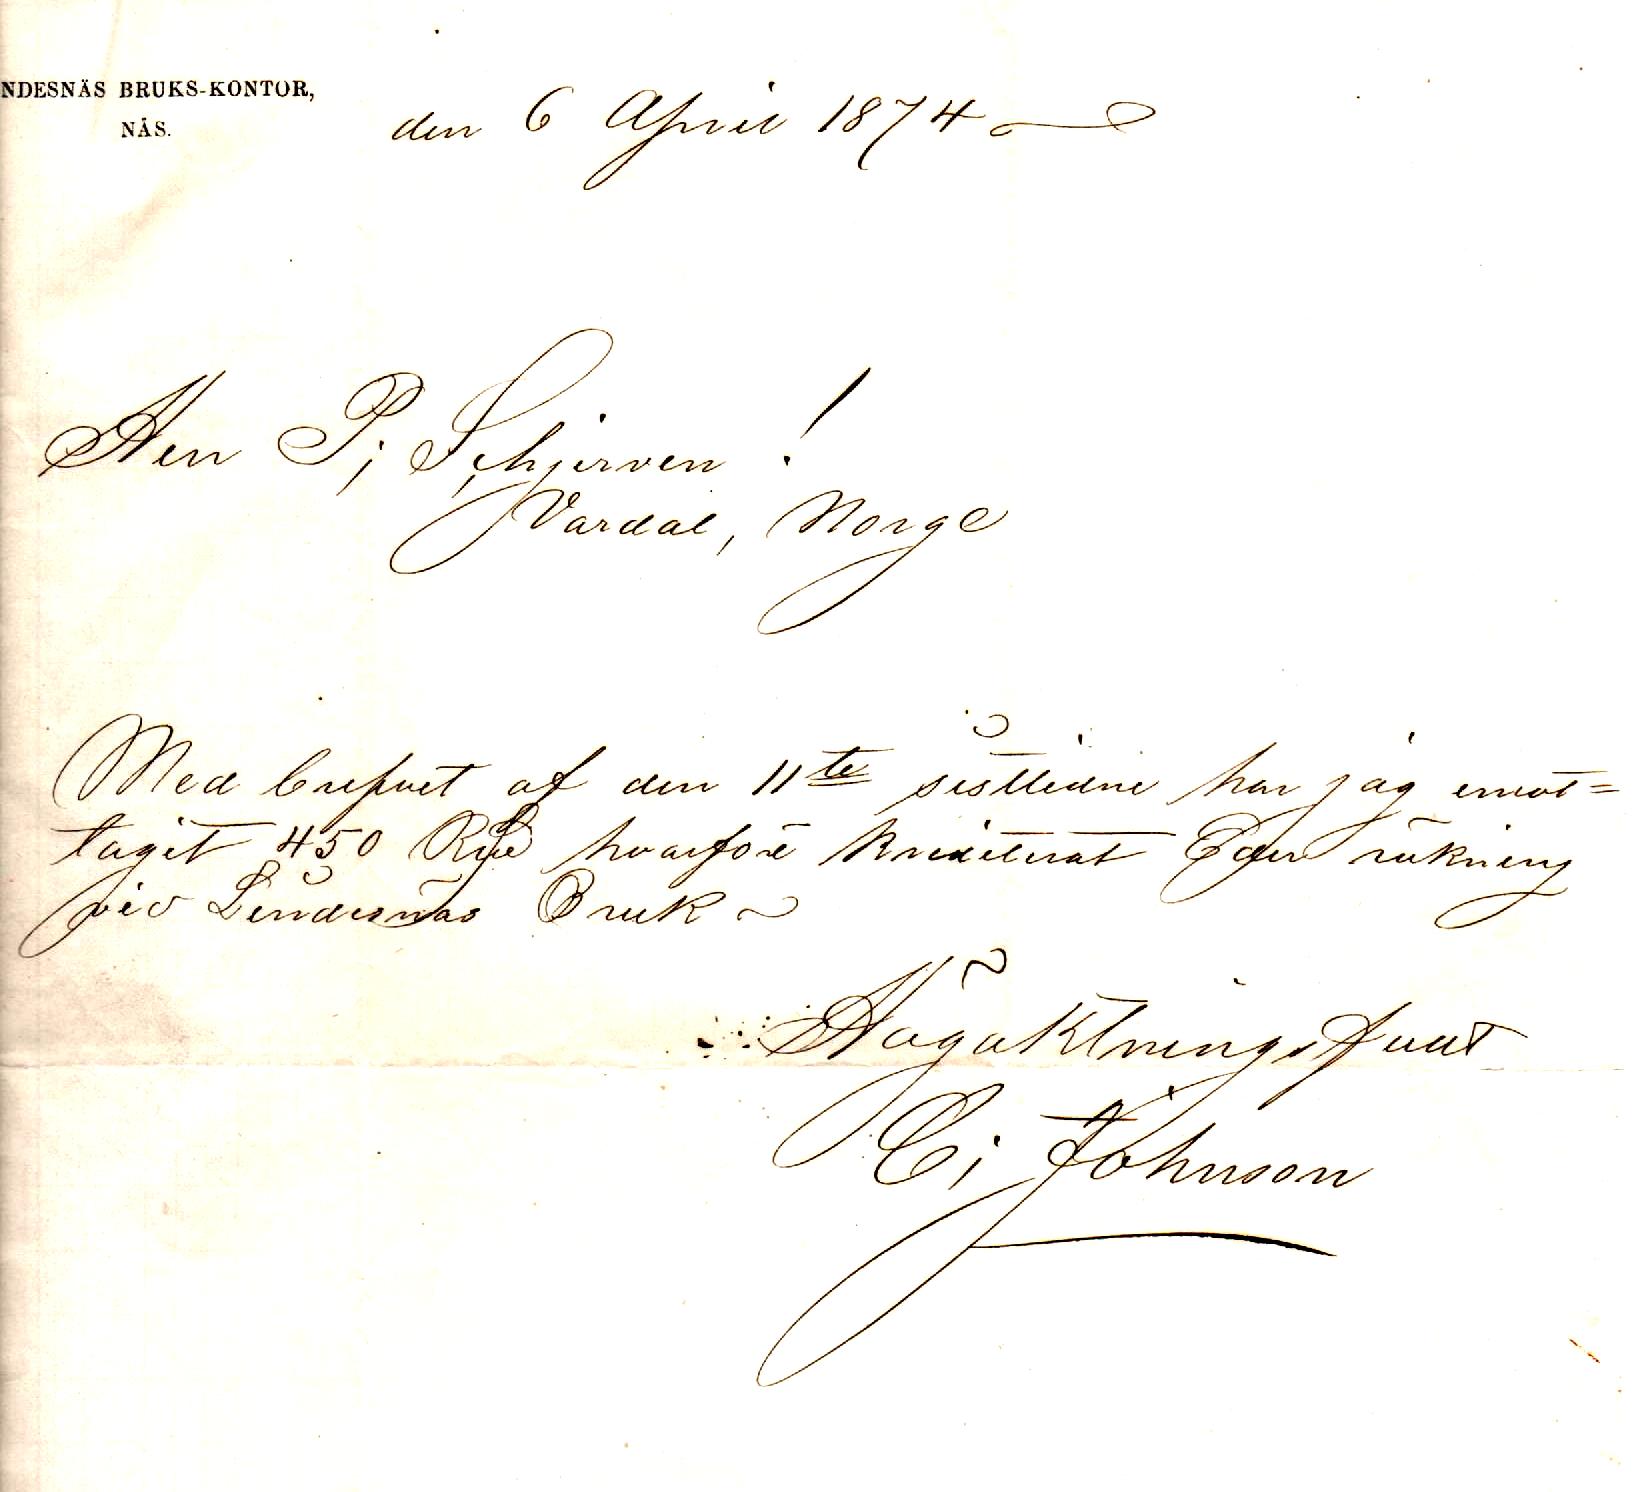 NDESNÄS BRUKS-KONTOR,
NÄS.
den 6 April 1874
Herr P; Schjerven !
Vardal, Norge
Med brefvet af den 11te sistledne har jag emot=
tagit 450 Rdr hvarföre krediterat Eder räkning
vid Lindesnäs Bruk
Högaktningsfullt
C; Johnson